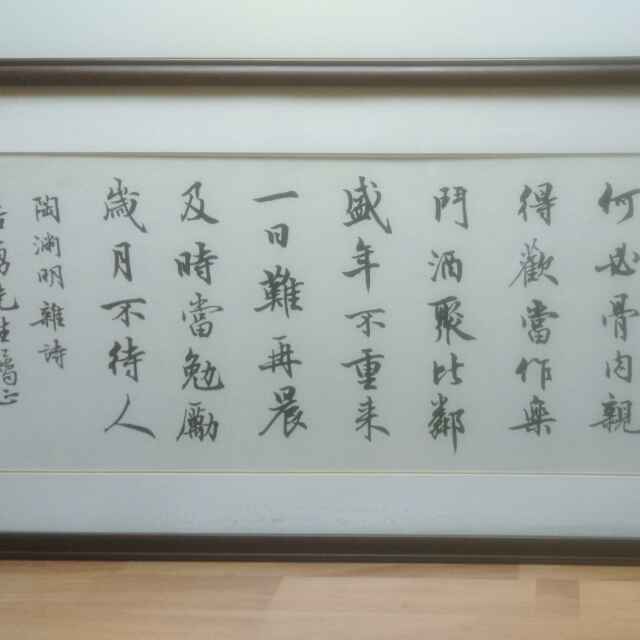 何必骨肉親
得歡當作樂
鬥酒聚比鄰
盛年不重来
一日難再晨
及時當勉勵
歲月不待人
陶淵明雜詩
先生